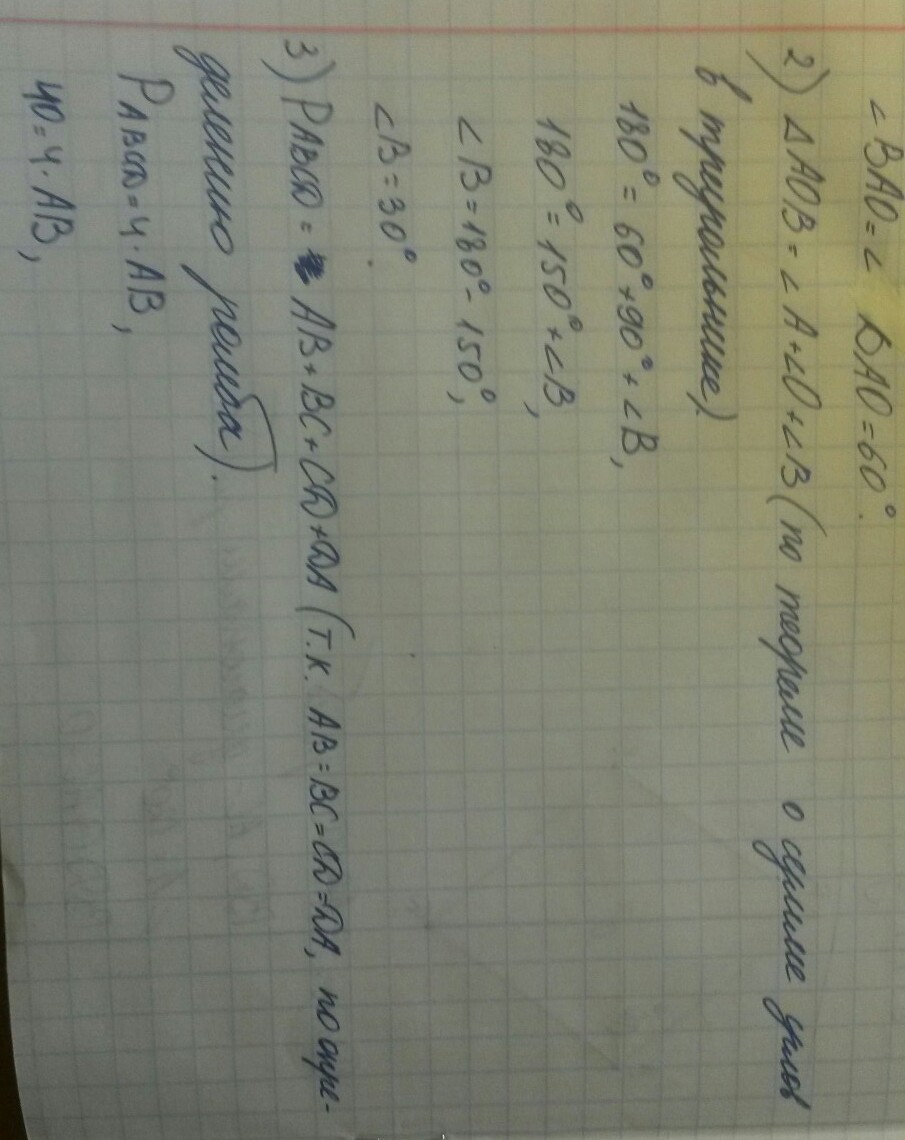 ∠BAO=∠ DAO=60°.
2) ΔAOB=∠A+∠O+∠B (по теореме о сумме углов
в треугольнике).
180°=60°+90°+∠B,
180°=150°+∠B,
∠B=180°-150°,
∠B=30°.
3) PABCD= AB+BC+CD+DA (т.к. AB=BC=CD=DA, по опре-
делению ромба).
PABCD=4·AB,
40=4·AB,